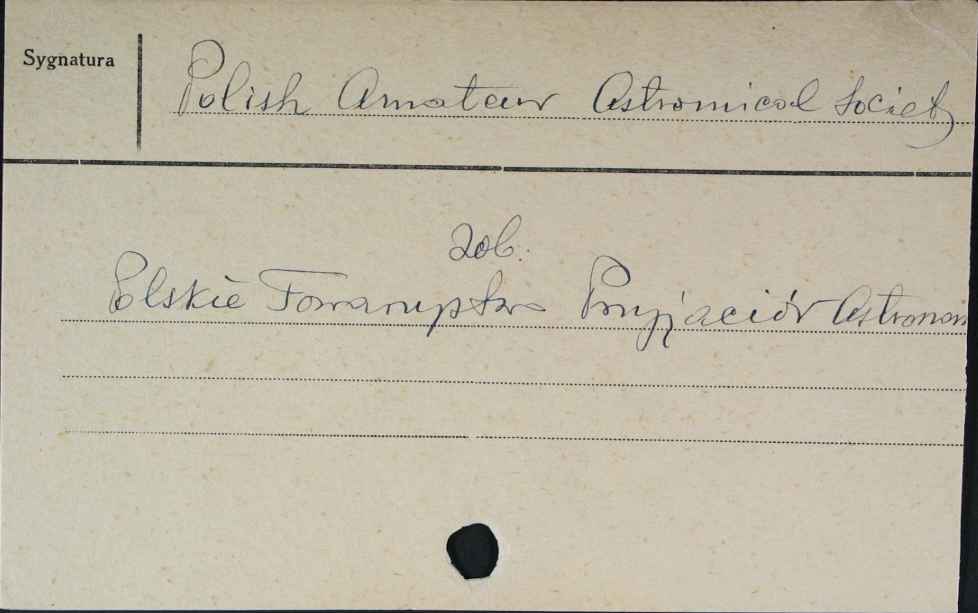 Sygnatura
Polish Amateur Astromical Society
zob.
Polskie Towarzystwo Przyjaciół Astronom